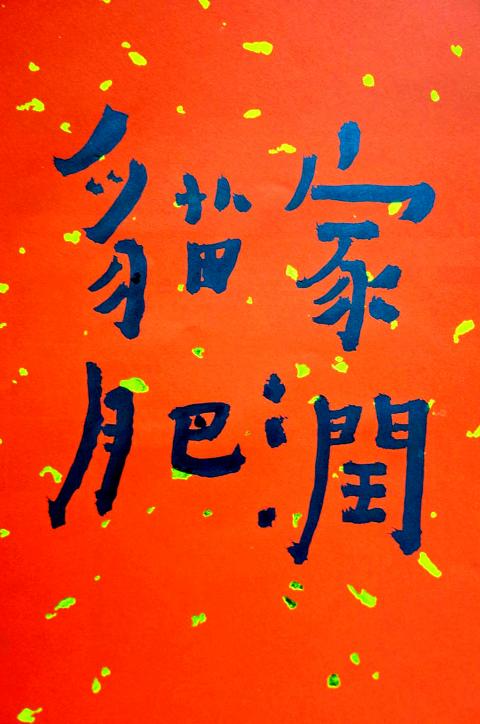 家潤
貓肥